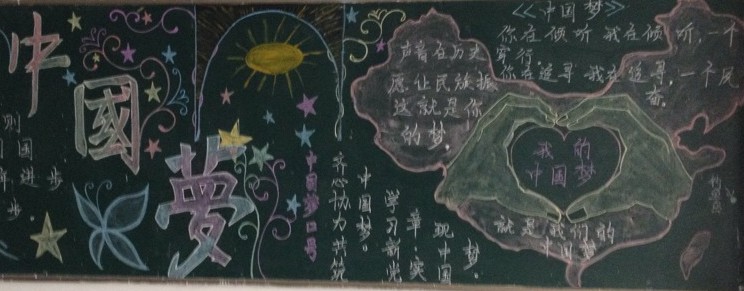 中
國
夢
则
国进步
年步。
中国梦口号
齐心协力共筑
中国梦。
学习新党
章·实
现中国
梦。
《中国梦》
你在倾听 我在倾听,一个
穿行.
你在追寻 我在追寻,一个民
声音在历史
愿让民族振
奋.
这就是你
的梦.
我的
中国梦
就是我们的
中国梦